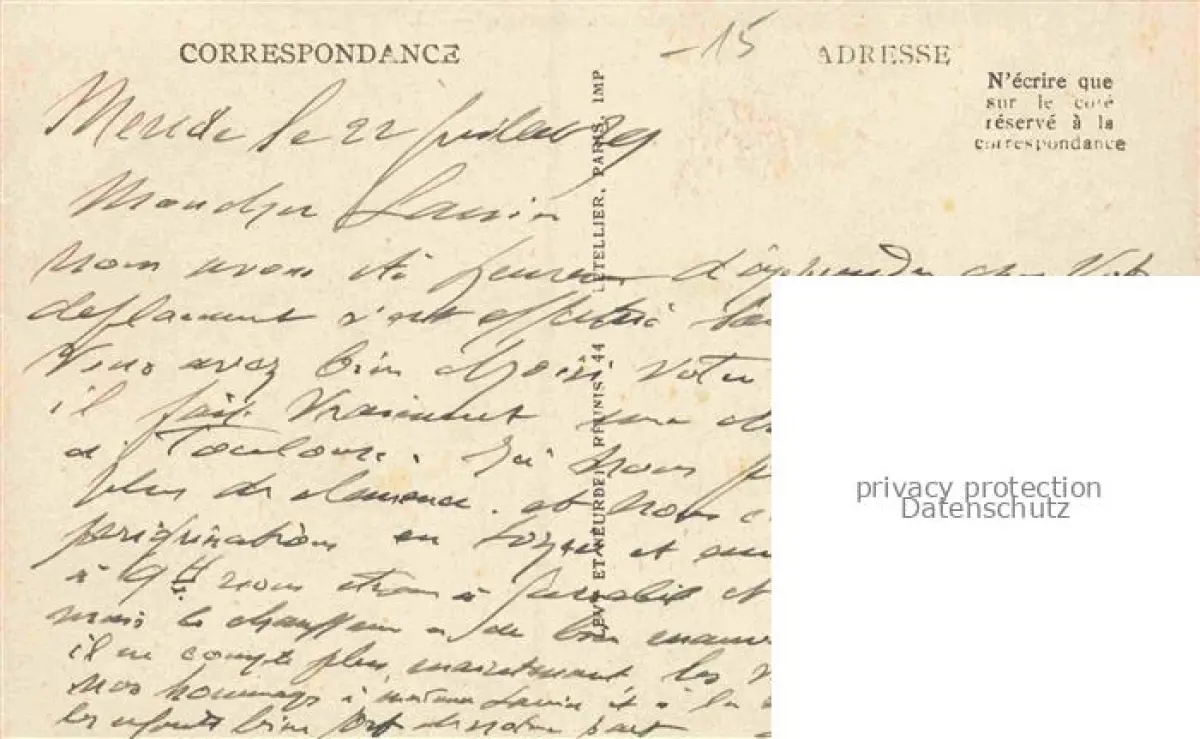 CORRESPONDANCE
- 15
ADRESSE
N'écrire que
sur le coté
réservé à la
correspondance
LEVY ET NEURDEIN RÉUNIS, 44 LETELLIER, PARIS. IMP
le 22 juillet 29
Mon cher
nous avons été heureux d'apprendre que Votre
deplacement s'est effectué
Vous avez bien choisi votre
il fait vraiment une
a Toulouse. Ici nous
plus de clemence. et nous
et
à 9H nous etions à et
mais le chauffeur a de bien
il ne compte plus maintenant les
Nos hommages à madame et à la
les enfants bien fort de notre part
privacy protection
Datenschutz